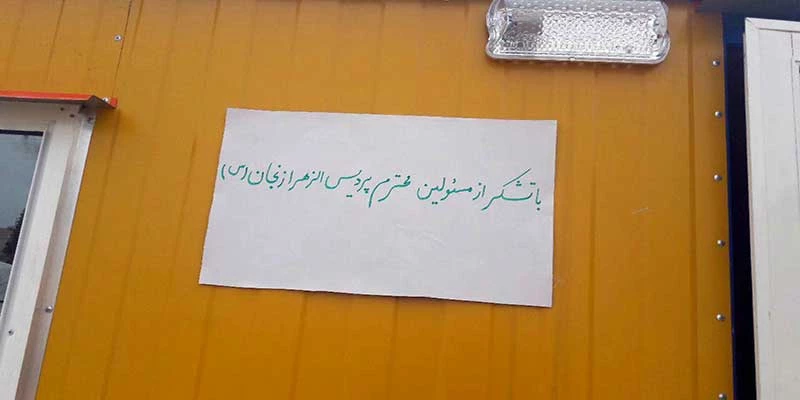 با تشکر از مسئولین محترم پردیس الزهرا زنجان (س)